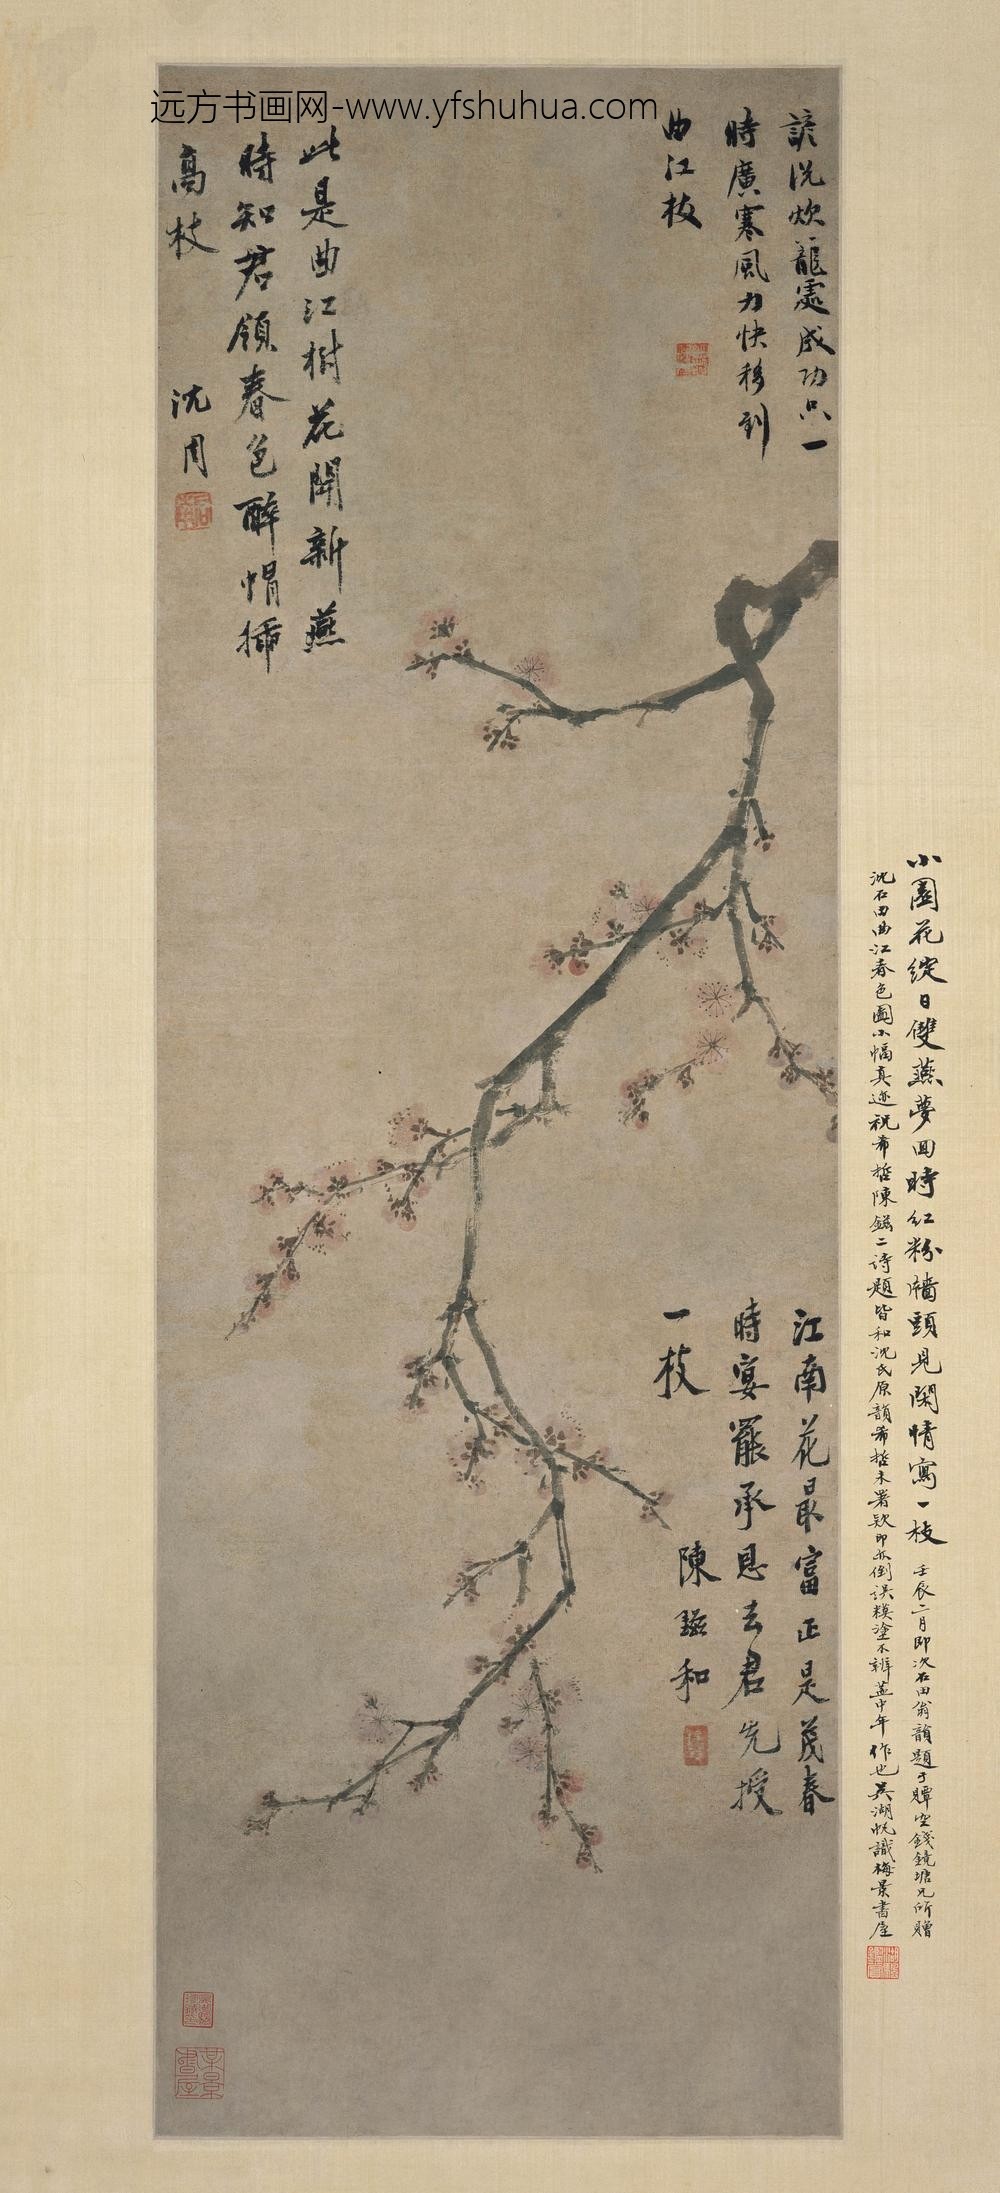 远方书画网-www.yfshuhua.com
處成功只一
時廣寒風力快移到
曲江枝
此是曲江樹花開新燕
時知君領春色醉帽插
高枝
沈周
江南花最富正是茂春
時宴罷承恩去君先授
一枝
陳鎡和
小園花綻日雙燕夢回時紅粉牆頭見閑情寫一枝
壬辰二月即次石田翁韻題于譚空錢鏡塘兄所贈
沈石田曲江春色圖小幅真迹祝希哲陳鎡二詩題皆和沈氏原韻希哲未署款即亦倒誤糢塗不辨蓋中年作也吳湖帆識梅景書屋